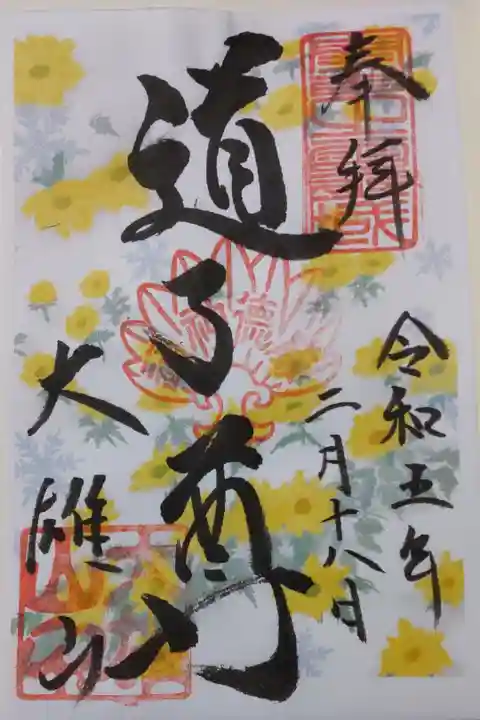 奉拜
令和五年
二月十八日
道了尊
大雄山